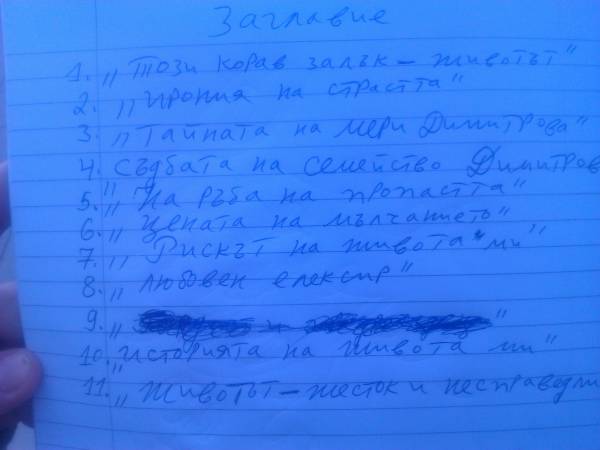 Заглавие
1. „Този корав залък – животът"
2. „Ирония на страстта"
3. „Тайната на Мери Димитрова"
4. „Съдбата на семейство Димитров
5. „На ръба на пропастта"
6. „Цената на мълчанието"
7. „Рискът на живота ми"
8. „Любовен елексир"
9. „ "
10. „Историята на живота ми"
11. „Животът – жесток и несправедли